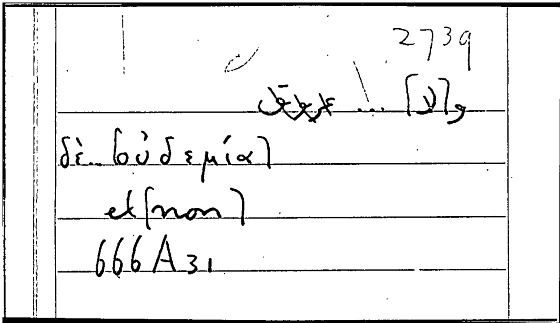 2739
و[لا] ...
δὲ.. [οὐδεμία]
et [non]
666A31